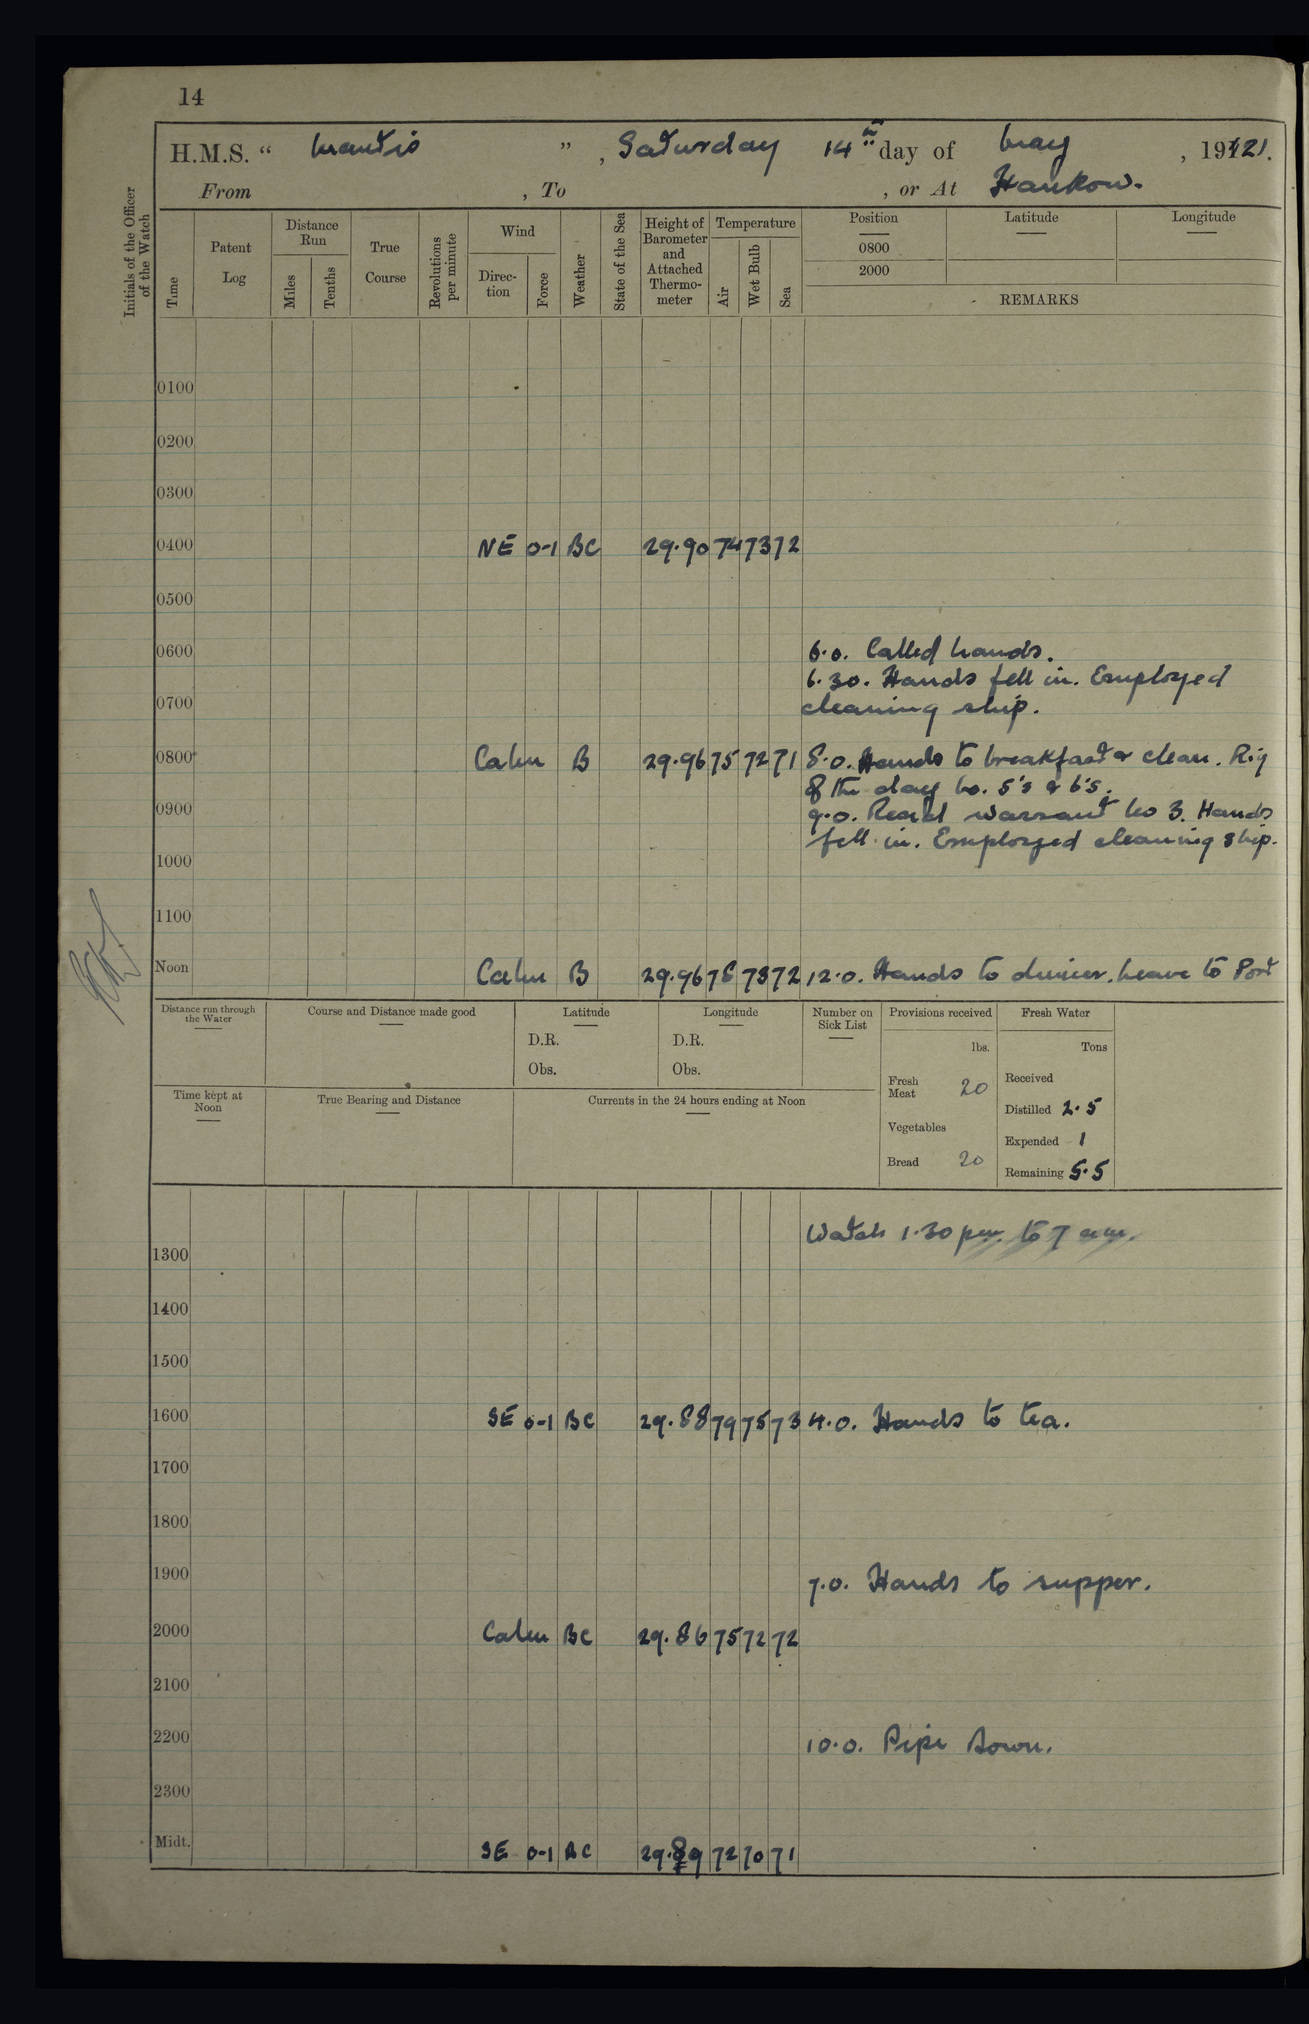 14
H.M.S. “ Mantis ” , Saturday 14th day of May , 1921.
From , To , or At Hankow.
Initials of the Officer of the Watch
Time
Patent Log
Distance Run
Miles
Tenths
True Course
Revolutions per minute
Wind
Direc-tion
Force
Weather
State of the Sea
Height of Barometer and Attached Thermo-meter
Temperature
Air
Wet Bulb
Sea
Position
Latitude
Longitude
0800
2000
REMARKS
0100
0200
0300
0400 NE 0-1 BC 29.90 74 73 72
0500
0600 6.0. Called hands.
6.30. Hands fell in. Employed
0700 cleaning ship.
0800 Calm B 29.96 75 72 71 8.0. Hands to breakfast & clean. Rig
of the day No. 5's & 6's.
0900 9.0. Read warrant No 3. Hands
fell in. Employed cleaning ship.
1000
1100
Noon Calm B 29.96 78 73 72 12.0. Hands to dinner. Leave to Port
Distance run through the Water
Course and Distance made good
Latitude
D.R.
Obs.
Longitude
D.R.
Obs.
Number on Sick List
Provisions received
lbs.
Fresh Meat 20
Vegetables
Bread 20
Fresh Water
Tons
Received
Distilled 2.5
Expended 1
Remaining 5.5
Time kept at Noon
True Bearing and Distance
Currents in the 24 hours ending at Noon
Watch 1.30 pm. to 7 am.
1300
1400
1500
1600 SE 0-1 BC 29.88 79 75 73 4.0. Hands to tea.
1700
1800
1900 7.0. Hands to supper.
2000 Calm BC 29.86 75 72 72
2100
2200 10.0. Pipe down.
2300
Midt. SE 0-1 BC 29.89 72 70 71